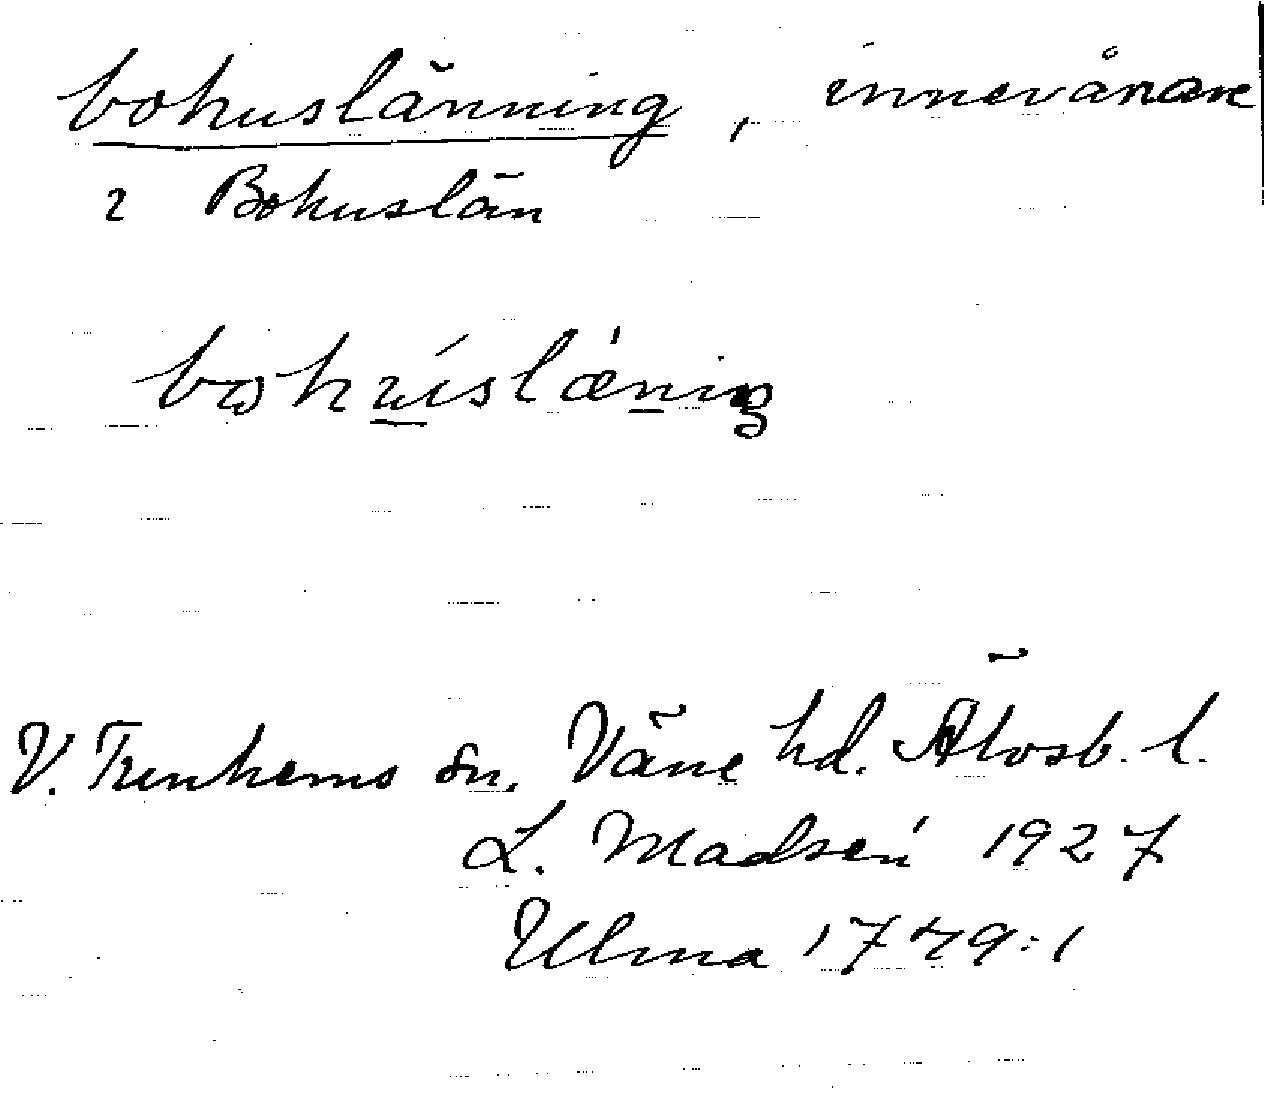 bohuslänning, innevånare
i Bohuslän
V. Tunhems sn, Väne hd. Älvsb. l.
L. Madsén 1927
Ulma 1749:1